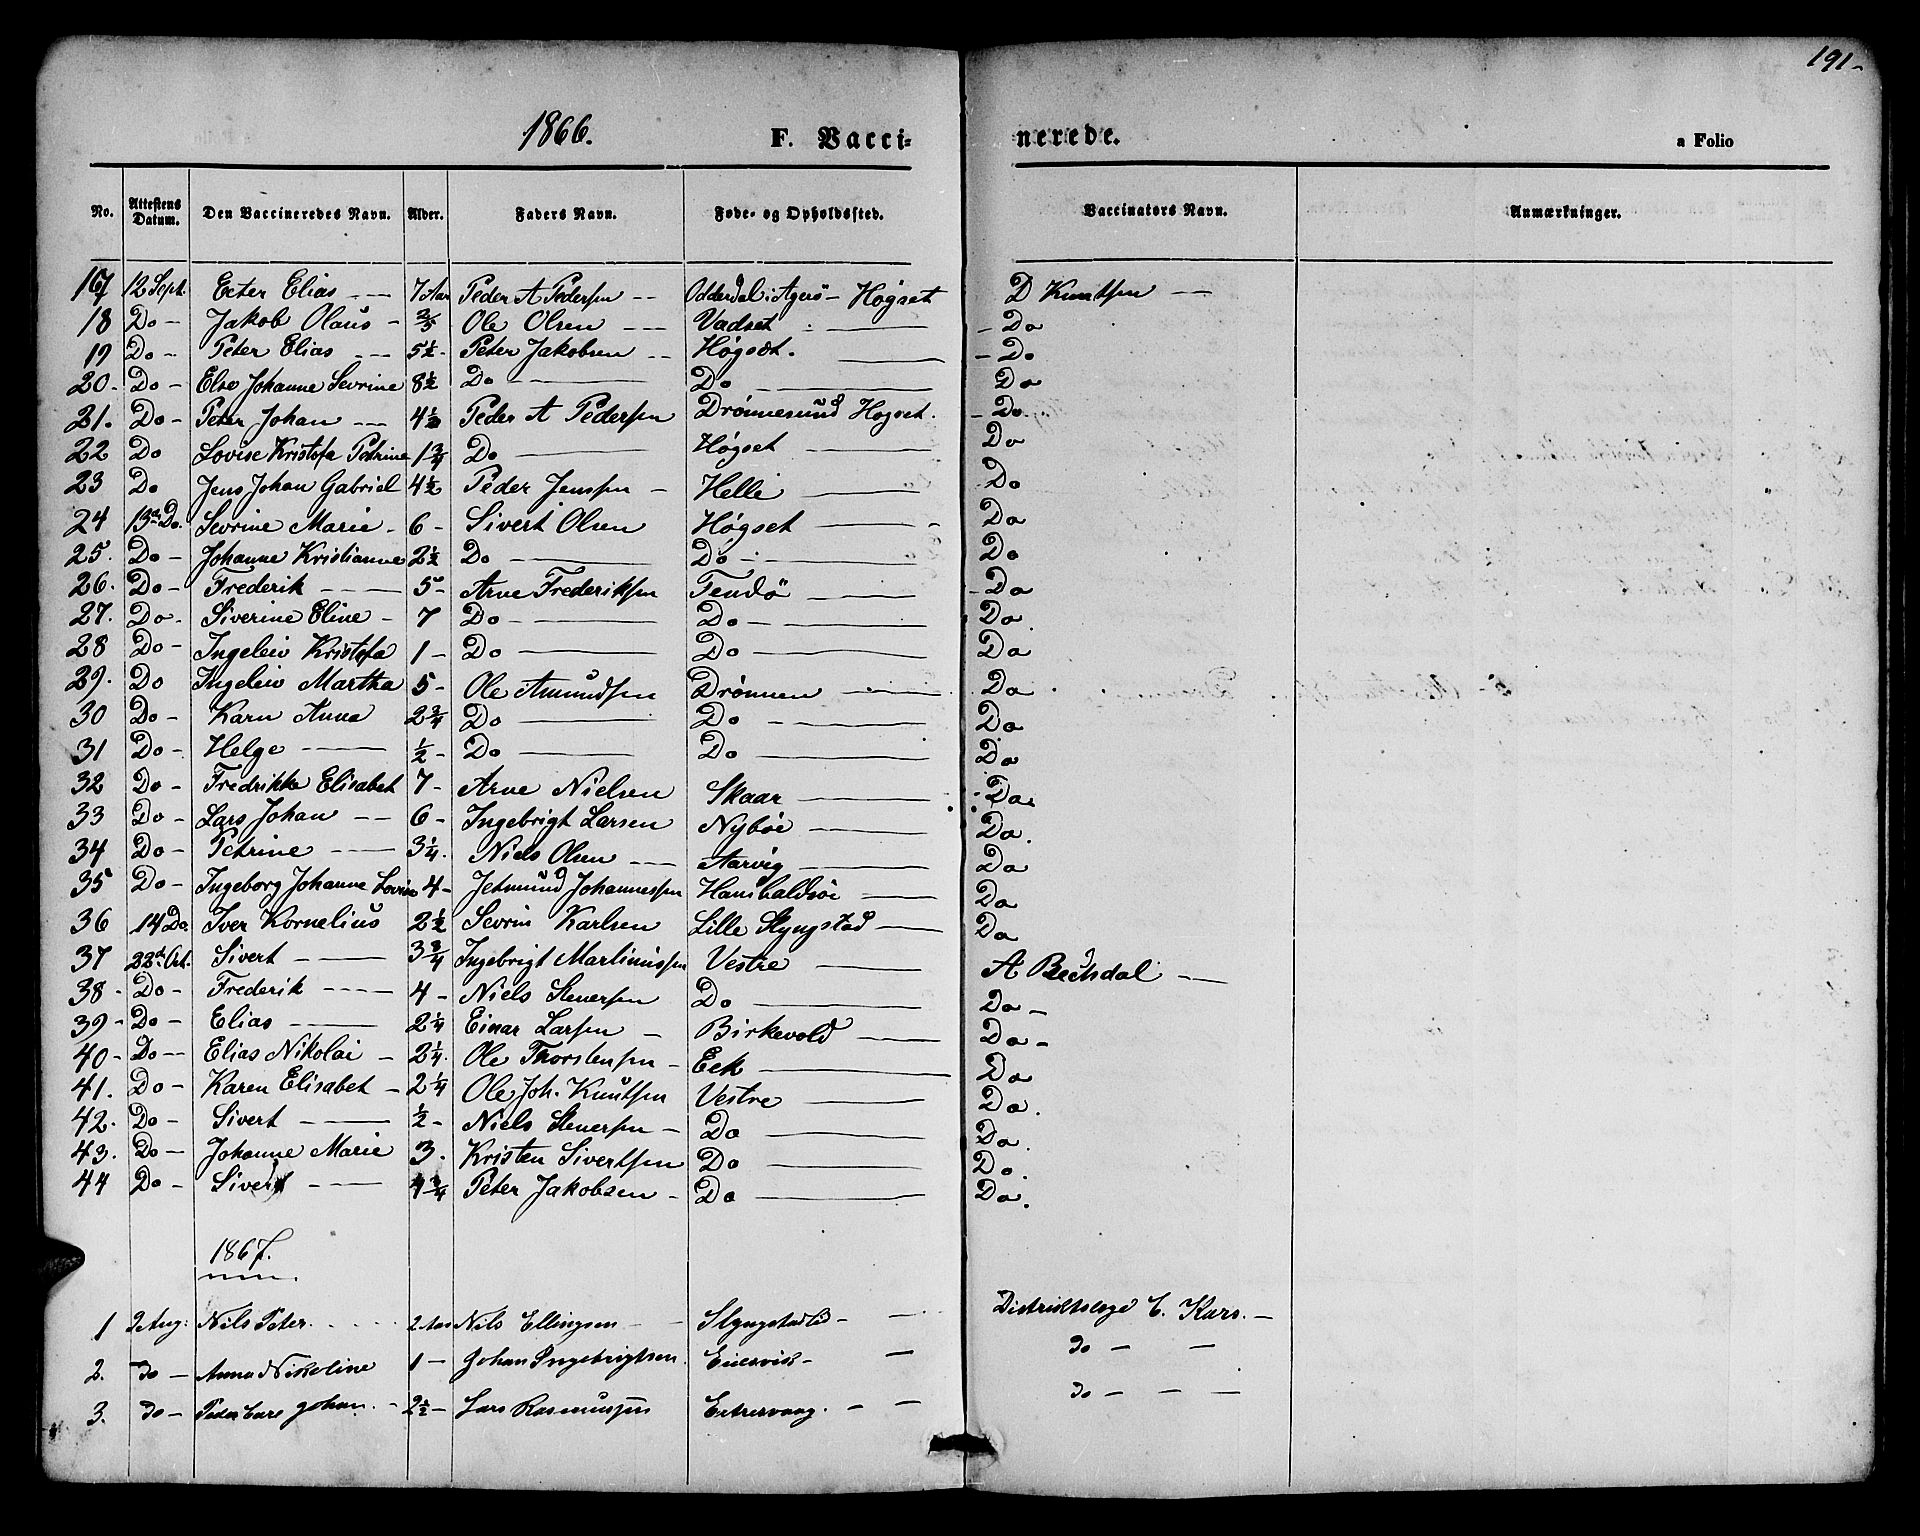 191-
1866. F. Vacci- nerede. a Folio
No. Attestens Datum. Den Vaccineredes Navn. Alder. Faders Navn. Føde- og Opholdssted. Vaccinators Navn. Anmærkninger.
17 12 Sept. Peter Elias --- 7 Aar Peder A Pedersen -- Odderdal i Agerö - Høgset D Knutsen --
18 Do - Jakob Olaus - 2/5 Ole Olsen --- Vadset - Do
19 Do - Peter Elias --- 5½ - Peter Jakobsen -- Høgset. - Do
20 - Do - Else Johanne Sevrine 8½ Do - Do - Do
21. Do - Peter Johan --- 4½ Peder A Pedersen Drönnesund Hogset. - Do
22 Do Lovise Kristofa Petrine 1¾ Do - Høgset - Do
23 Do Jens Johan Gabriel 4½ Peder Jensen - Helle - Do
24 13de Do. Sevrine Marie - 6 - Sivert Olsen Høgset - Do
25. Do - Johanne Kristianne 2½ Do - Do - Do
26. Do - Frederik - 5 - Arne Frederiksen Tendö - Do
27. Do - Siverine Eline - 7 Do - Do - Do
28 Do - Ingeleiv Kristofa 1 - Do - Do - Do
29. Do Ingeleiv Martha 5 - Ole Amundsen Drönnen - Do
30 Do - Karn Anna 2¾ Do - Do - Do
31 Do - Helge - ½ - Do - Do - Do
32 Do - Fredrikke Elisabet 7 - Arne Nielsen Skaar - Do
33 Do - Lars Johan -- 6 - Ingebrigt Larsen Nybøe - Do.
34 Do - Petrine - 3¼. Niels Olsen --- Aarvig - Do
35 Do - Ingeborg Johanne Lovise 4 - Jetmund Johannessen Hanibaldsöe - Do
36 14 Do. Iver Kornelius 2½ Sevrin Karlsen Lille Slyngstad - Do
37 22de Oct. Sivert - 3¾ Ingebrigt Martinussen Vestre - A Bechsdal -
38 - Do - Frederik - 4 - Niels Stenersen Do - Do -
39 - Do - Elias - 2¼ Einar Larsen - Birkevold - Do -
40 - Do -- Elias Nikolai - 2¼. Ole Thorstensen - Eek - Do
41. Do - Karen Elisabet - 2¼ Ole Joh. Knutsen Vestre - Do.
42. Do - Sivert - ½ - Niels Stenersen - Do - Do.
43. Do - Johanne Marie 3. Kristen Sivertsen Do - Do.
44 Do - Sivert - ¾ Peter Jakobsen - Do - Do.
1867.
1 2 Aug: Nils Peter. 2 Aar Nils Ellingsen - Slyngstadlid - Distriktslæge C. Kurs. -
2. do - Anna Nikoline 1 - Johan Ingebrigtsen. - do - -
3. do - Peder Johan. - 2½ - Lars Rasmussen - - do - - -